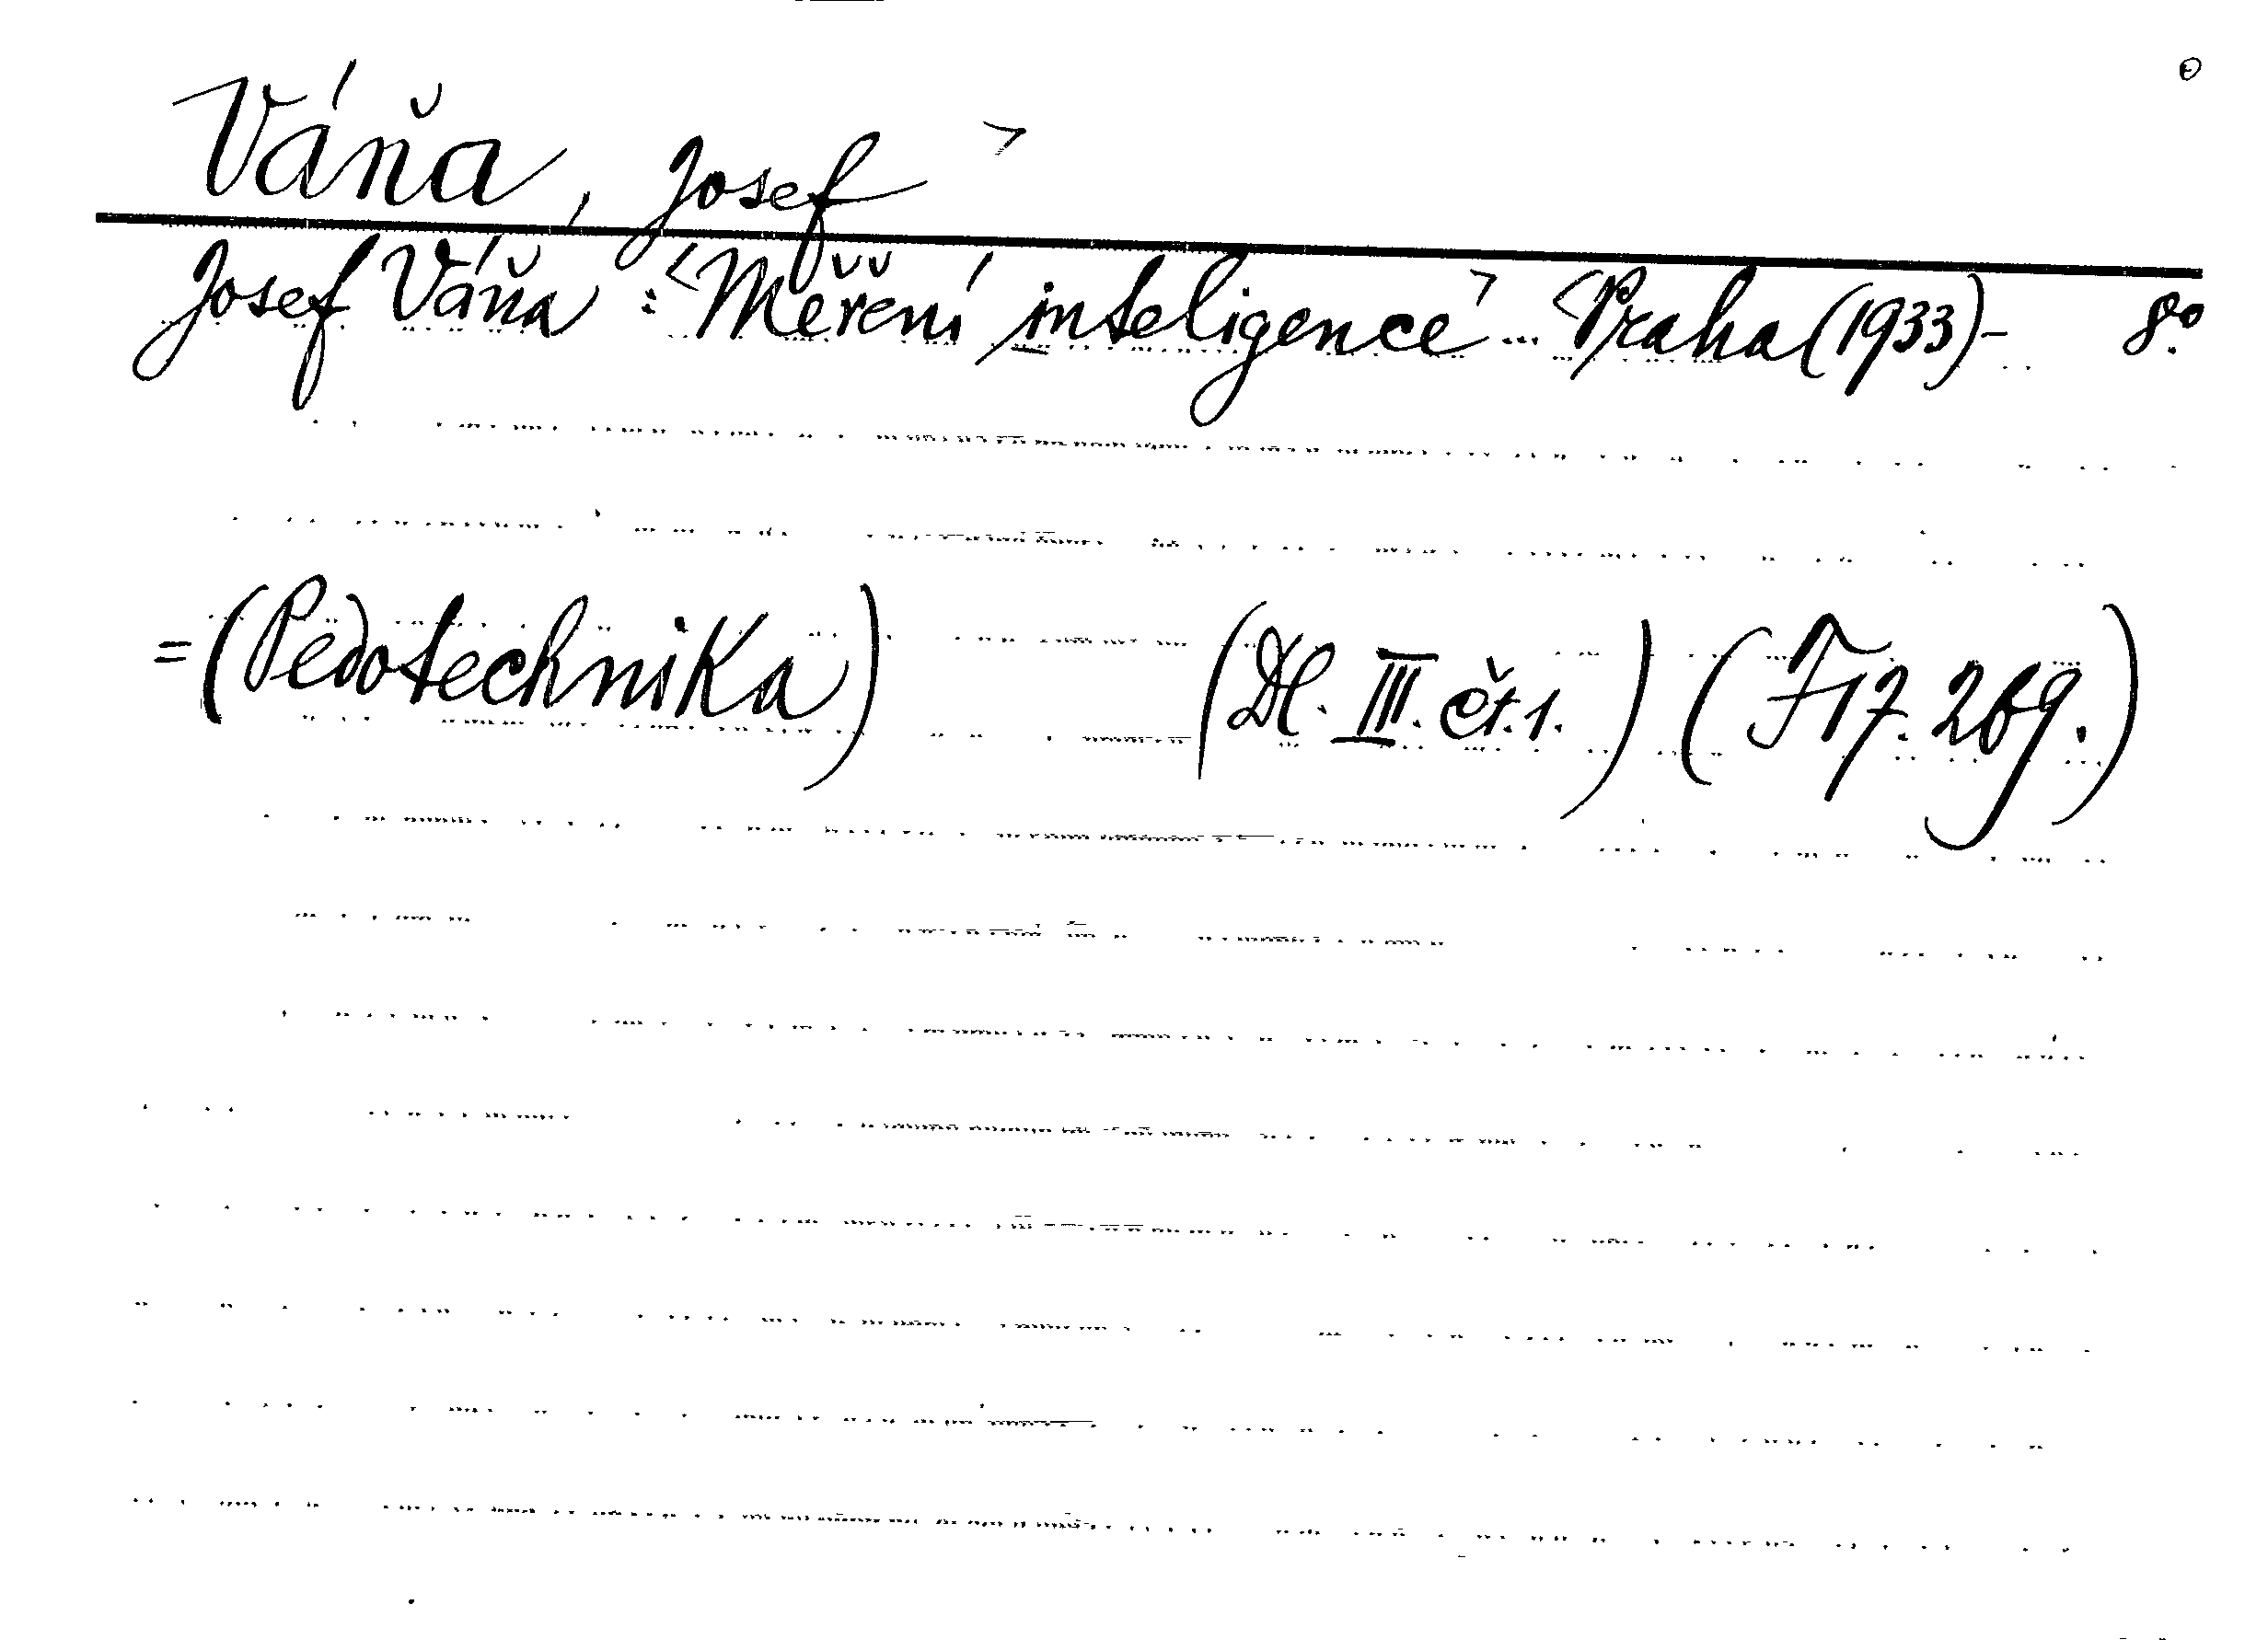 Váňa, Josef >
Josef Váňa: <Měření inteligence> ... <Praha (1933)- 8°.
=(Pedotechnika) (Dl. III. čt. 1.) (F 17. 269.)